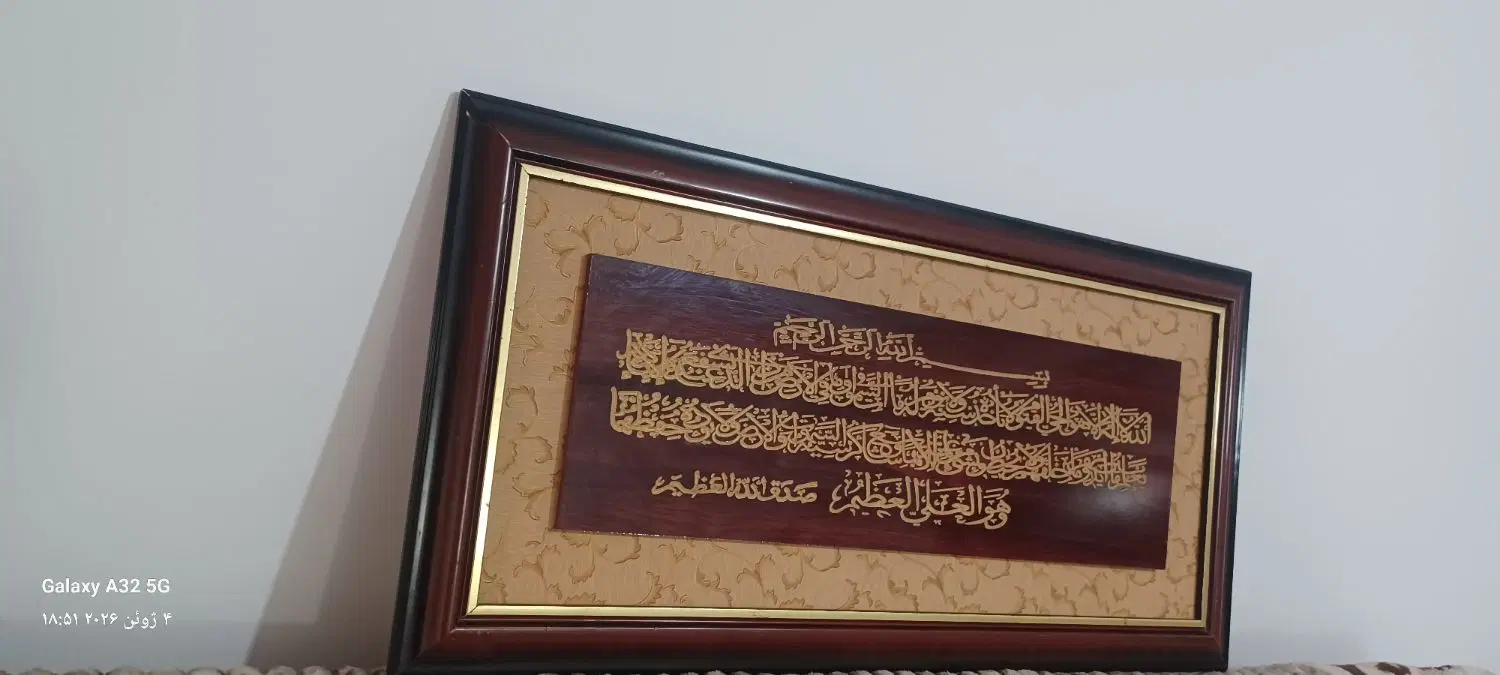 بسم الله الرحمن الرحيم
الله لا اله الا هو الحي القيوم لا تأخذه سنة ولا نوم له ما في السموات وما في الارض من ذا الذي يشفع عنده الا باذنه
يعلم ما بين ايديهم وما خلفهم ولا يحيطون بشيء من علمه الا بما شاء وسع كرسيه السموات والارض ولا يؤده حفظهما
وهو العلي العظيم صدق الله العظيم
Galaxy A32 5G
۴ ژوئن ۲۰۲۶ ۱۸:۵۱